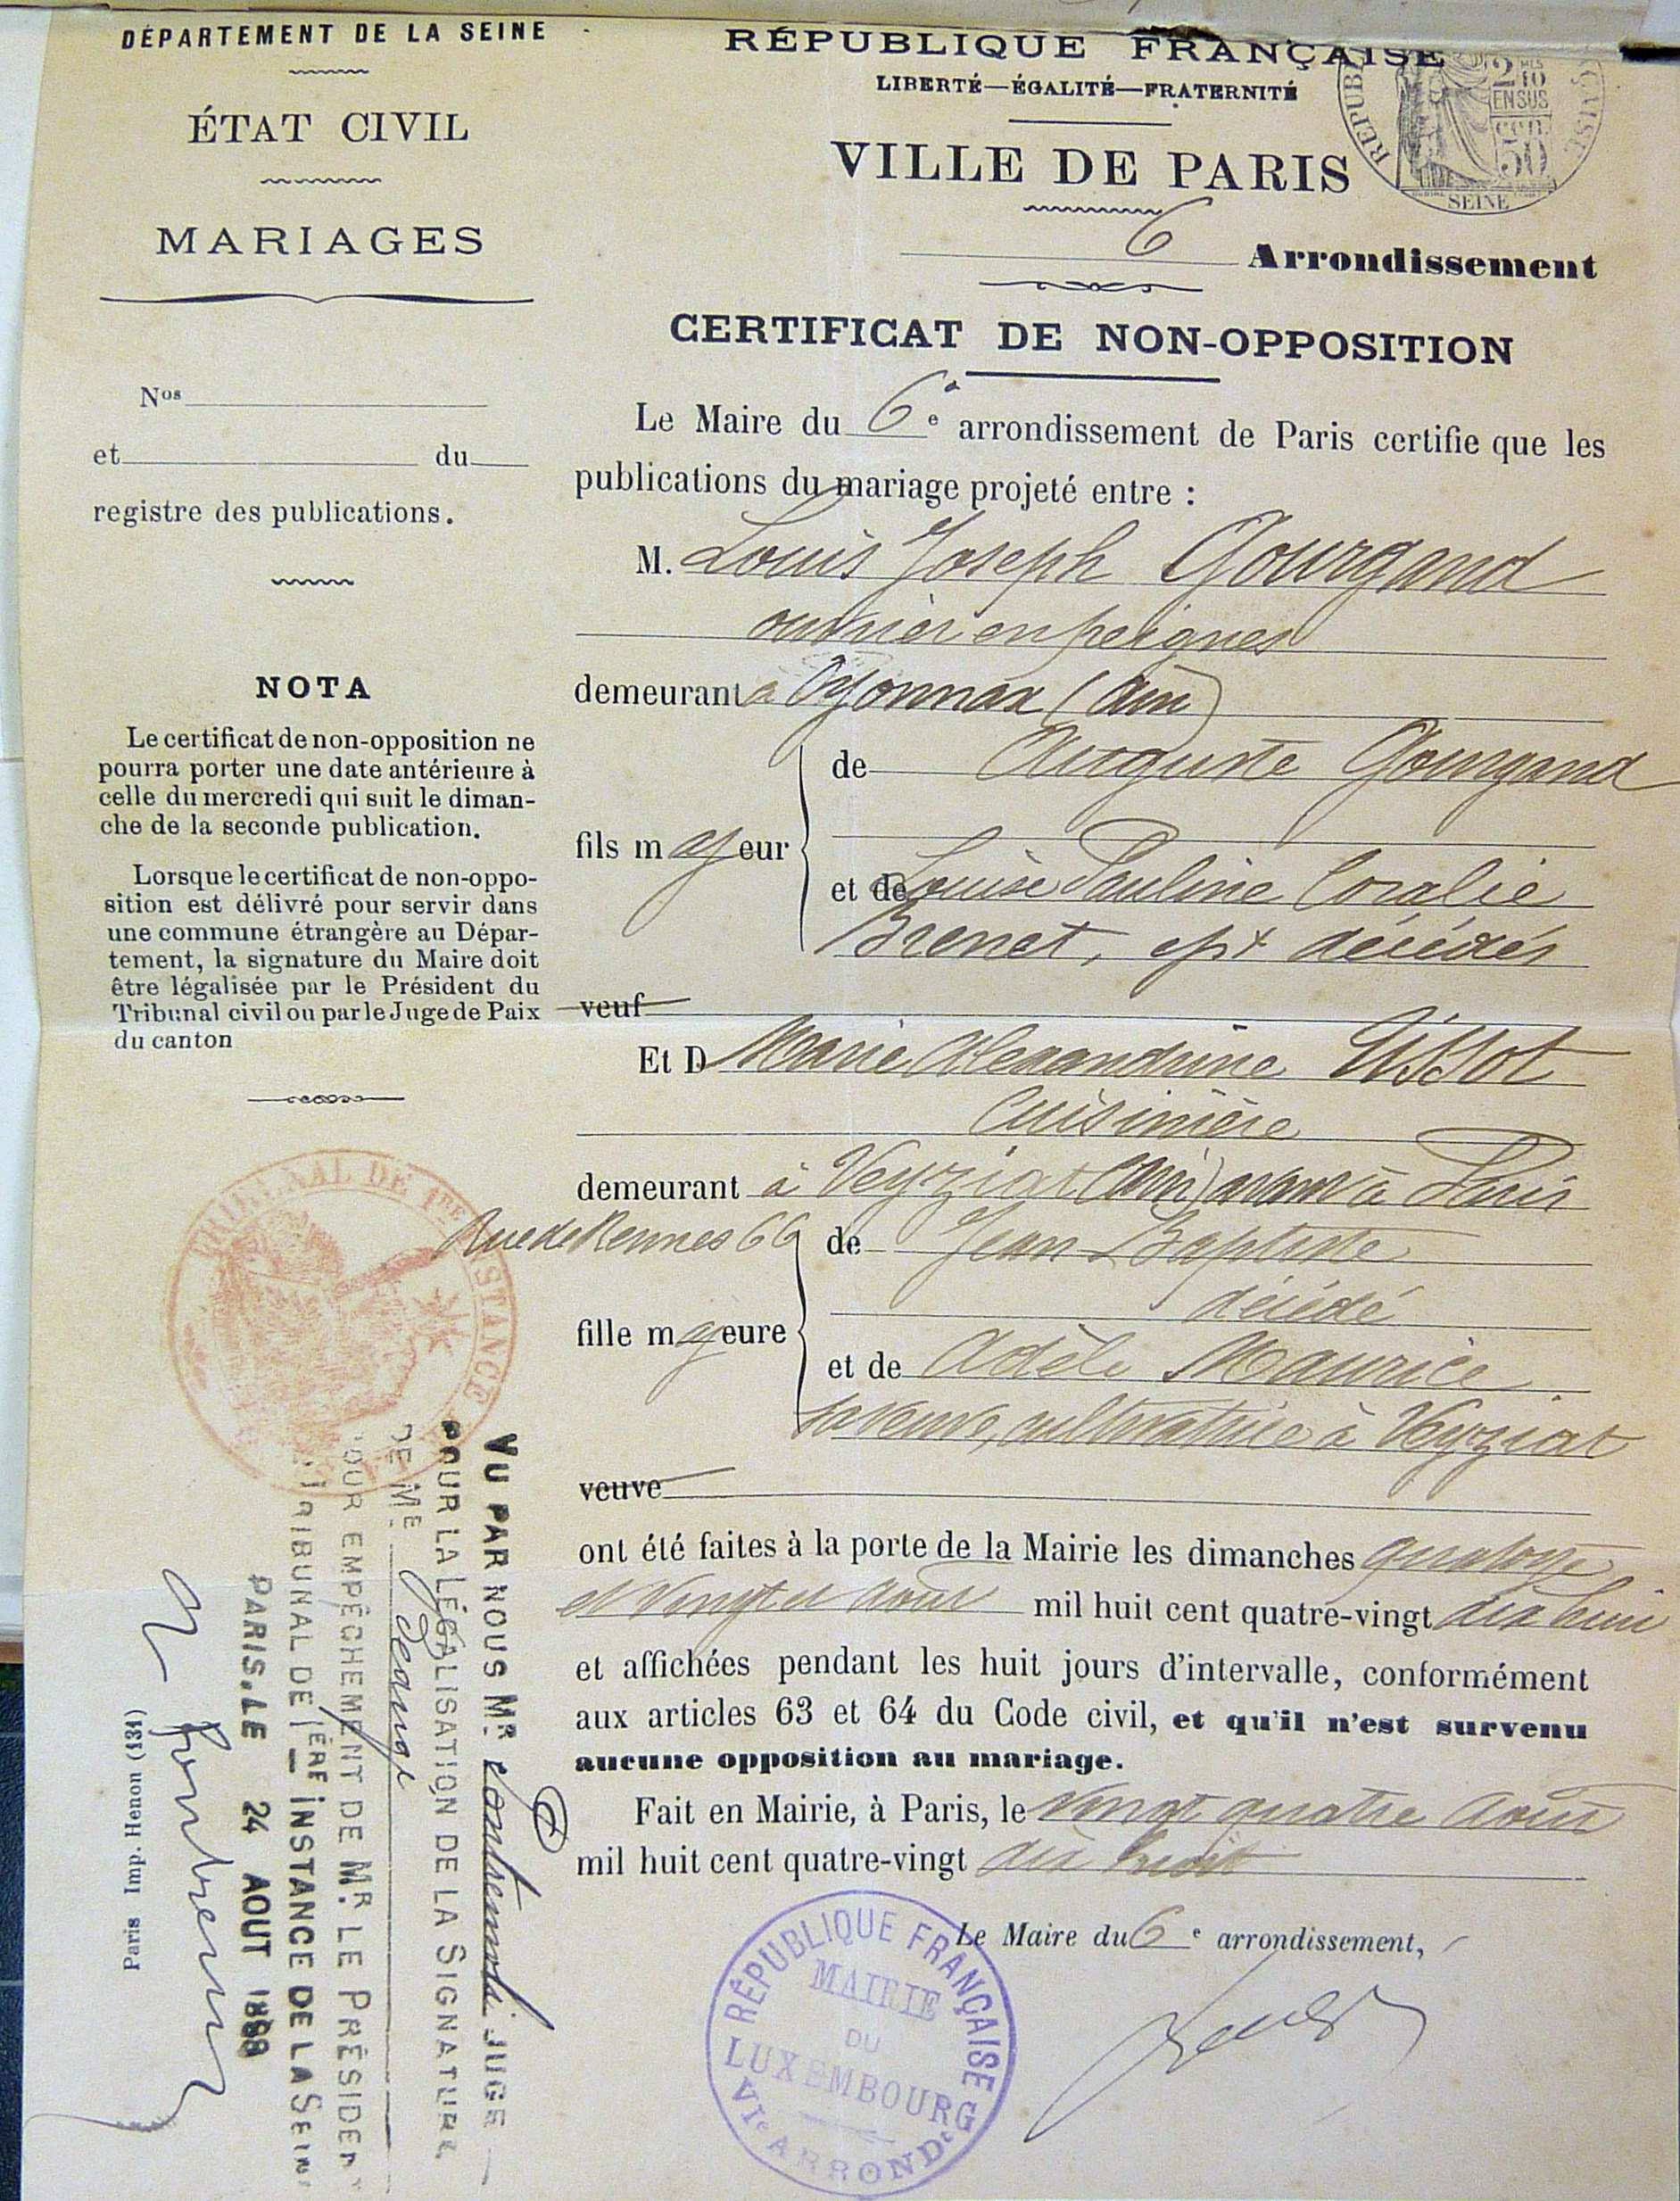 DÉPARTEMENT DE LA SEINE
ÉTAT CIVIL
MARIAGES
Nos
et du
registre des publications.
NOTA
Le certificat de non-opposition ne
pourra porter une date antérieure à
celle du mercredi qui suit le diman-
che de la seconde publication.
Lorsque le certificat de non-oppo-
sition est délivré pour servir dans
une commune étrangère au Dépar-
tement, la signature du Maire doit
être légalisée par le Président du
Tribunal civil ou par le Juge de Paix
du canton
RÉPUBLIQUE FRANÇAISE
LIBERTÉ—ÉGALITÉ—FRATERNITÉ
2/10
EN SUS
50
SEINE
VILLE DE PARIS
6 Arrondissement
CERTIFICAT DE NON-OPPOSITION
Le Maire du 6e arrondissement de Paris certifie que les
publications du mariage projeté entre :
M. Louis Joseph Gourgand
ouvrier en peignes
demeurant à Oyonnax (Ain)
de Auguste Gourgand
fils majeur
et de Louise Pauline Coralie
Brenet, epx décédés
veuf
Et D Marie Alexandrine Ussot
Cuisinière
demeurant à Veyziat (Ain) avant à Paris
Rue de Rennes 66
de Jean Baptiste
décédé
fille majeure
et de Adèle Maurice
sa veuve, cultivatrice à Veyziat
veuve
ont été faites à la porte de la Mairie les dimanches quatorze
et Vingt et août mil huit cent quatre-vingt dix huit
et affichées pendant les huit jours d'intervalle, conformément
aux articles 63 et 64 du Code civil, et qu'il n'est survenu
aucune opposition au mariage.
Fait en Mairie, à Paris, le vingt quatre août
mil huit cent quatre-vingt dix huit
Le Maire du 6e arrondissement,
RÉPUBLIQUE FRANÇAISE
MAIRIE
DU
LUXEMBOURG
VIe ARRONDt
TRIBUNAL DE 1RE INSTANCE
VU PAR NOUS MR JUGE
POUR LA LÉGALISATION DE LA SIGNATURE
DE ME
POUR EMPÊCHEMENT DE MR LE PRÉSIDENT
TRIBUNAL DE 1ÈRE INSTANCE DE LA SEINE
PARIS. LE 24 AOUT 1898
Paris Imp. Henon (131)